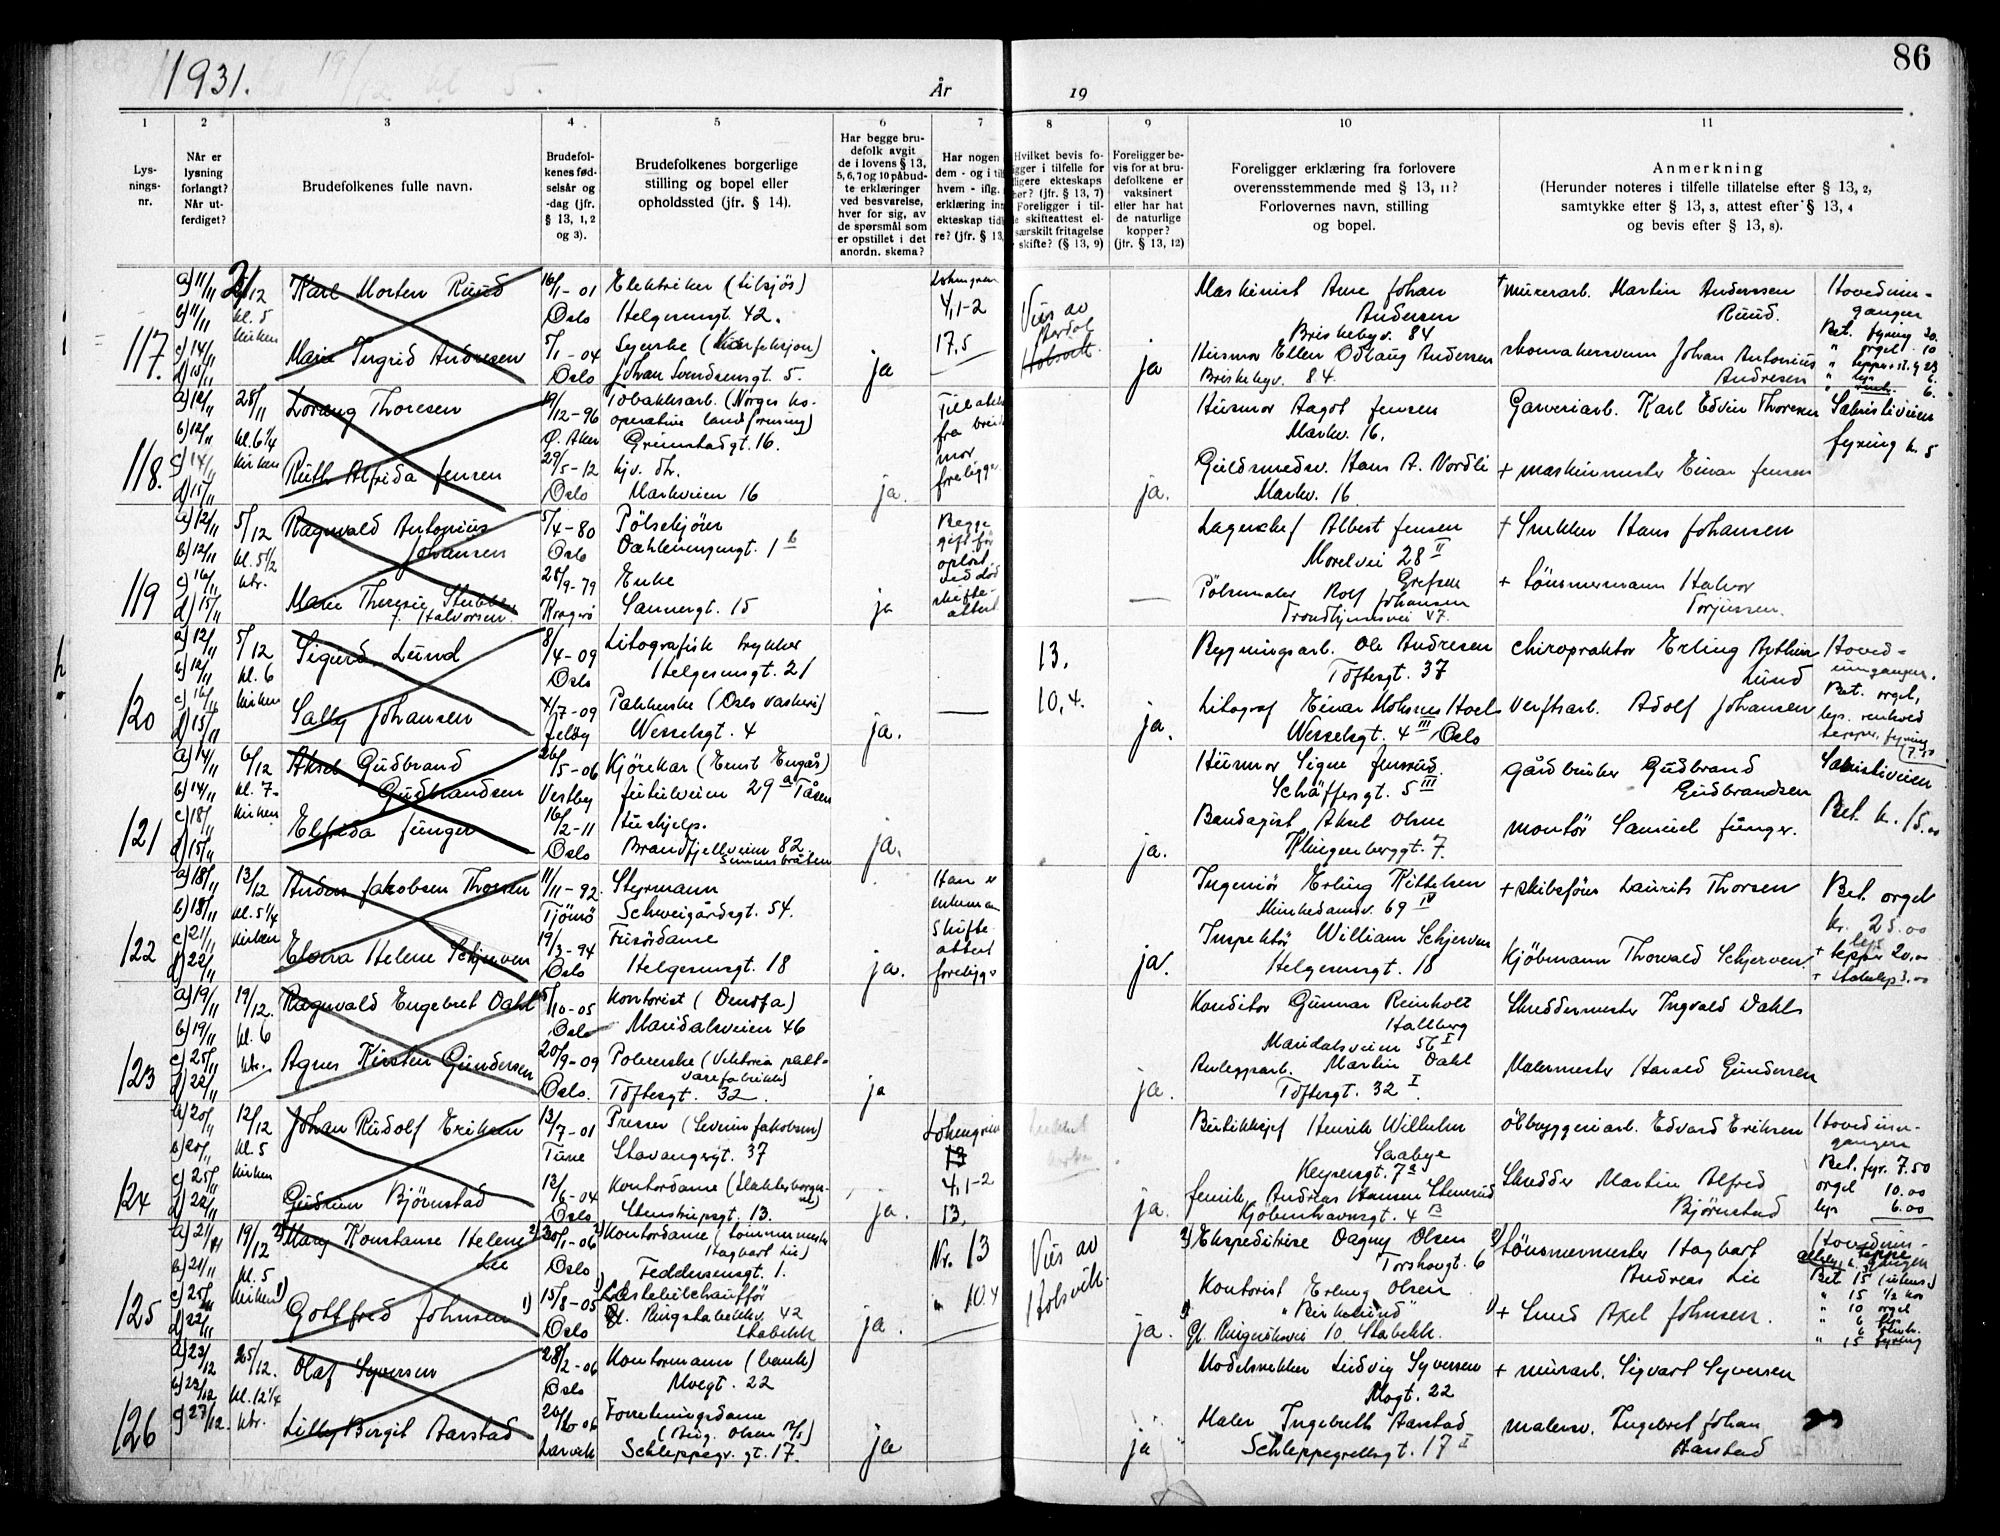 1931.
År
19
86
1
2
3
4
5
6
7
8
9
10
11
Lys-
nings-
nr.
Når er
lysning
forlangt?
Når ut-
ferdiget?
Brudefolkenes fulle navn.
Brudefol-
kenes fød-
selsår og
-dag (jfr.
§ 13, 1, 2
og 3).
Brudefolkenes borgerlige
stilling og bopel eller
opholdssted (jfr. § 14).
Har begge bru-
defolk avgit
de i lovens § 13,
5, 6, 7 og 10 påbud-
te erklæringer
ved besvarelse,
hver for sig, av
de spørsmål som
er opstillet i det
anordn. skema?
Har nogen
dem - og i til
hvem - iflg.
erklæring inn
ekteskap tid
re? (jfr. § 13,
Hvilket bevis fo-
ligger i tilfelle for
ligere ekteskaps
her? (jfr. § 13, 7)
Foreligger i til-
skifteattest el-
særskilt fritagelse
skifte? (§ 13, 9)
Foreligger be-
vis for at bru-
defolkene er
vaksinert
eller har hat
de naturlige
kopper?
(jfr. § 13, 12)
Foreligger erklæring fra forlovere
overensstemmende med § 13, 11?
Forlovernes navn, stilling
og bopel.
Anmerkning
(Herunder noteres i tilfelle tillatelse efter § 13, 2,
samtykke efter § 13, 3, attest efter § 13, 4
og bevis efter § 13, 8).
117.
a) 11/11
b) 11/11
c) 14/11
d) 15/11
kl. 5
kirken
Karl Morten Ruud
Marie Ingrid Andresen
16/1-01
Oslo
5/1-04
Oslo
Elektriker (tilsjøs)
Helgesensgt. 42.
Syerske
Johan Svendsensgt. 5.
ja
Lohengren
4,1-2
17,5
Vies av
Hotsvik
ja
Maskinist Arne Johan
Andersen
Briskebyv. 84
Husmor Ellen Odlaug Andersen
Briskebyv. 84.
+ murerarb. Martin Anderssen
Ruud.
skomakersvenn Johan Antonius
Andresen
Hovedinn-
gangen
Bet. fyring 20.
" orgel 10
118.
a) 12/11
b) 12/11
c) 14/11
d) 15/11
28/11
kl. 6 1/4
kirken
Lorang Thoresen
Ruth Alfrida Jensen
19/12-96
Ø. Aker
29/5-12
Oslo
Tobakksarb. (Norges ko-
operative landsforening)
Grimstadgt. 16.
hjv. dtr.
Markveien 16
ja.
mor
foreligger
ja.
Husmor Aagot Jensen
Markv. 16.
Guldsmedsv. Hans A. Nordli
Markv. 16
Garveriarb. Karl Edvin Thoresen
+ maskinmester Einar Jensen
Sakristiveien
fyring k. 5
119
a) 12/11
b) 12/11
c) 16/11
d) 15/11
5/12
kl. 5 1/2
kir.
Ragnvald Antonius
Johansen
Marie Theresie Stubber
f. Halvorsen
5/4-80
Oslo
28/9-79
Kragerø
Pølsekjører
Dahlenengengt. 1 b
Enke
Sannergt. 15
ja
Begge
gift før
opløst
ved død
skifte-
attest
Lagerchef Albert Jensen
Morelvei 28 II
Grefsen
Pølsemaker Rolf Johansen
Trondhjemsvei 47.
+ Snekker Hans Johansen
+ tømmermann Halvor
Torjussen.
120
a) 12/11
b) 12/11
c) 16/11
d) 15/11
5/12
kl. 6
kirken
Sigurd Lund
Sally Johansen
8/4-09
Oslo
4/7-09
Jeløy
Litografisk trykker
Helgesensgt. 21
Pakkerske (Oslo vaskeri)
Wesselsgt. 4
ja.
13.
10,4.
ja.
Bygningsarb. Ole Andresen
Toftesgt. 37
Litograf Einar Moksnes Hoel
Wesselsgt. 4 III Oslo
Chiropraktor Erling Arthur
Lund
Verftsarb. Adolf Johansen
Hoved-
inngangen.
Bet. orgel,
lys. renhold
teppe, fyring
121
a) 14/11
b) 14/11
c) 18/11
d) 15/11
6/12
kl. 7-
kirken
Aksel Gudbrand
Gudbrandsen
Elfrida Junger
26/5-06
Vestby
16/2-11
Oslo
Kjørekar (Ernst Engås)
Jutulveien 29 a Tåsen
Hushjelp.
Brandfjellveien 82
Simensbråten
ja.
ja.
Husmor Signe Jensrud
Schäffersgt. 5 III
Bandagist Aksel Olsen
Klingenberggt. 7.
gårdbruker Gudbrand
Gudbrandsen
montør Samuel Junger.
Sakristiveien
Bet. k. 15.00
122
a) 18/11
b) 18/11
c) 21/11
d) 22/11
13/12
kl. 5 1/4
kirken
Anders Jakobsen Thorsen
Elvira Helene Schjerven
11/11-92
Tjømø
19/3-94
Oslo
Styrmann
Schweigårdsgt. 54.
Frisørdame
Helgesensgt. 18
ja.
Han er
enkeman
Skifte-
attest
foreligger
ja.
Ingeniør Erling Kittelsen
Munkedamsv. 69 IV
Inspektør William Schjerven
Helgesensgt. 18
+ skibsfører Laurits Thorsen
Kjøbmann Thorvald Schjerven.
Bet. orgel
kr. 25.00
lys
+ tepper 20,00
123
a) 19/11
b) 19/11
c) 25/11
d) 22/11
19/12.
kl. 6
kir.
Ragnvald Engebret Dahl
Agnes Kirsten Gundersen
5/10-05
Oslo
20/9-09
Oslo.
Kontorist
Maridalsveien 46
Polererske (Viktoria platt-
varefabrikk)
Toftesgt. 32.
ja
ja.
Konditor Gunnar Reinholt
Hallberg
Maridalsveien 56 I
Anleggsarb. Martin Dahl
Toftesgt. 32 I
Skreddermester Ingvald Dahl
Malermester Harald Gundersen
124
a) 20/11
b) 20/11
c) 25/11
d) 22/11
12/12
kl. 5
kirken
Johan Rudolf Eriksen
Gudrun Bjørnstad
13/7-01
Tune
13/6-04
Oslo
Presser (Severin Jakobsen)
Stavangergt. 37
Kontordame
Stenstrupsgt. 13.
ja.
Lohengrin
13
4,1-2
13,
ja.
Butikksjef Henrik Wilhelm
Saabye
Keysersgt. 7 a
Andreas Hansen Stensrud
Kjøbenhavnsgt. 4 B
ølbryggeriarb. Edvard Eriksen
Skredder Martin Alfred
Bjørnstad
Hovedinn-
gangen
Bet. fyr. 7.50
orgel 10.00
lys 6.00
125
a) 21/11
b) 21/11
c) 25/11
d) 22/11
19/12
kl. 5
kirken
2) Mary Konstanse Helene
Lie
1) Gottfred Johnsen
2) 30/1-06
Oslo
1) 15/8-05
Oslo
2) Kontordame (tømmermester
Hagbart Lie)
Feddersensgt. 1.
1) Lastebilchauffør
Gl. Ringstabekkv. 42
Stabekk
ja.
Nr. 13
" 10,4
Vies av
Holsvik.
ja.
2) Ekspeditrise Dagny Olsen
Torshovgt. 6
Kontorist Erling Olsen
"Birkelund"
Gl. Ringeriksvei 10. Stabekk.
2) Tømmermester Hagbart
Andreas Lie
1) + Smed Axel Johnsen.
Hovedinn-
gangen
teppe
Bet. 15
" 15 1/2 kor
" 10 orgel
" 6 lys
" 15 fyring
126
a) 23/12
b) 23/12
c) 27/12.
25/12.
kl. 12 1/4
kir.
Olaf Syversen
Lilly Birgit Aarstad
28/2-06
Oslo
Larvik
Kontormann (bank)
Moegt. 22
Forretningsdame
(Aug. Olsen A/S)
Schleppegr. gt. 17.
ja
ja
Modelsnekker Ludvig Syversen
Mogt. 22
Maler Ingebreth Aarstad
Schleppegrellsgt. 17 I
+ murarb. Sigvart Syversen
malersv. Ingebret Johan
Aarstad